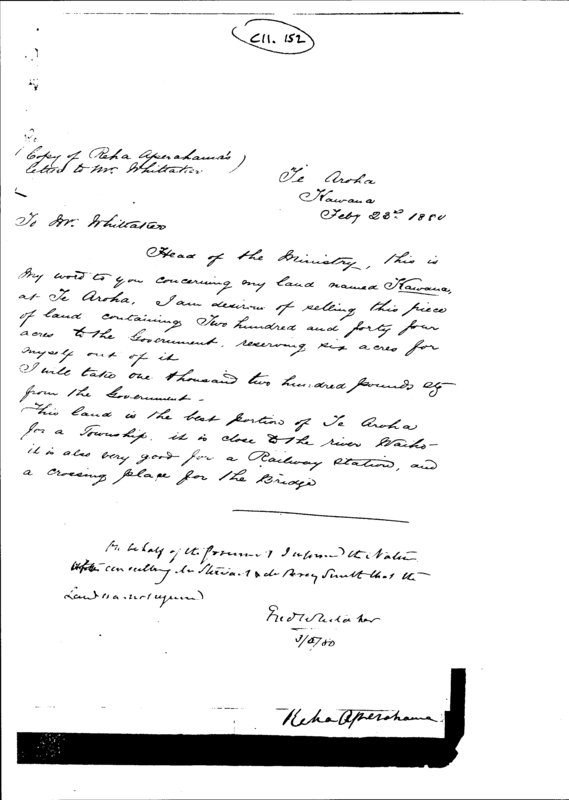 C11. 152
(Copy of Reha Aperahama's
letter to Mr. Whittaker)
Te Aroha
Kawana
Feby 23rd 1880
To Mr. Whittaker
Head of the Ministry, this is
my word to you concerning my land named Kawana,
at Te Aroha, I am desirous of selling this piece
of land containing Two hundred and forty four
acres to the Government, reserving six acres for
myself out of it
I will take one thousand two hundred pounds stg
from the Government -
This land is the best portion of Te Aroha
for a Township. it is close to the river Waiho -
it is also very good for a Railway Station, and
a crossing place for the Bridge
On behalf of the Government I informed the Native
consulting Mr Stewart & Mr Percy Smith that the
Land was not required
Fred Whitaker
3/5/80
Reha Aperahama